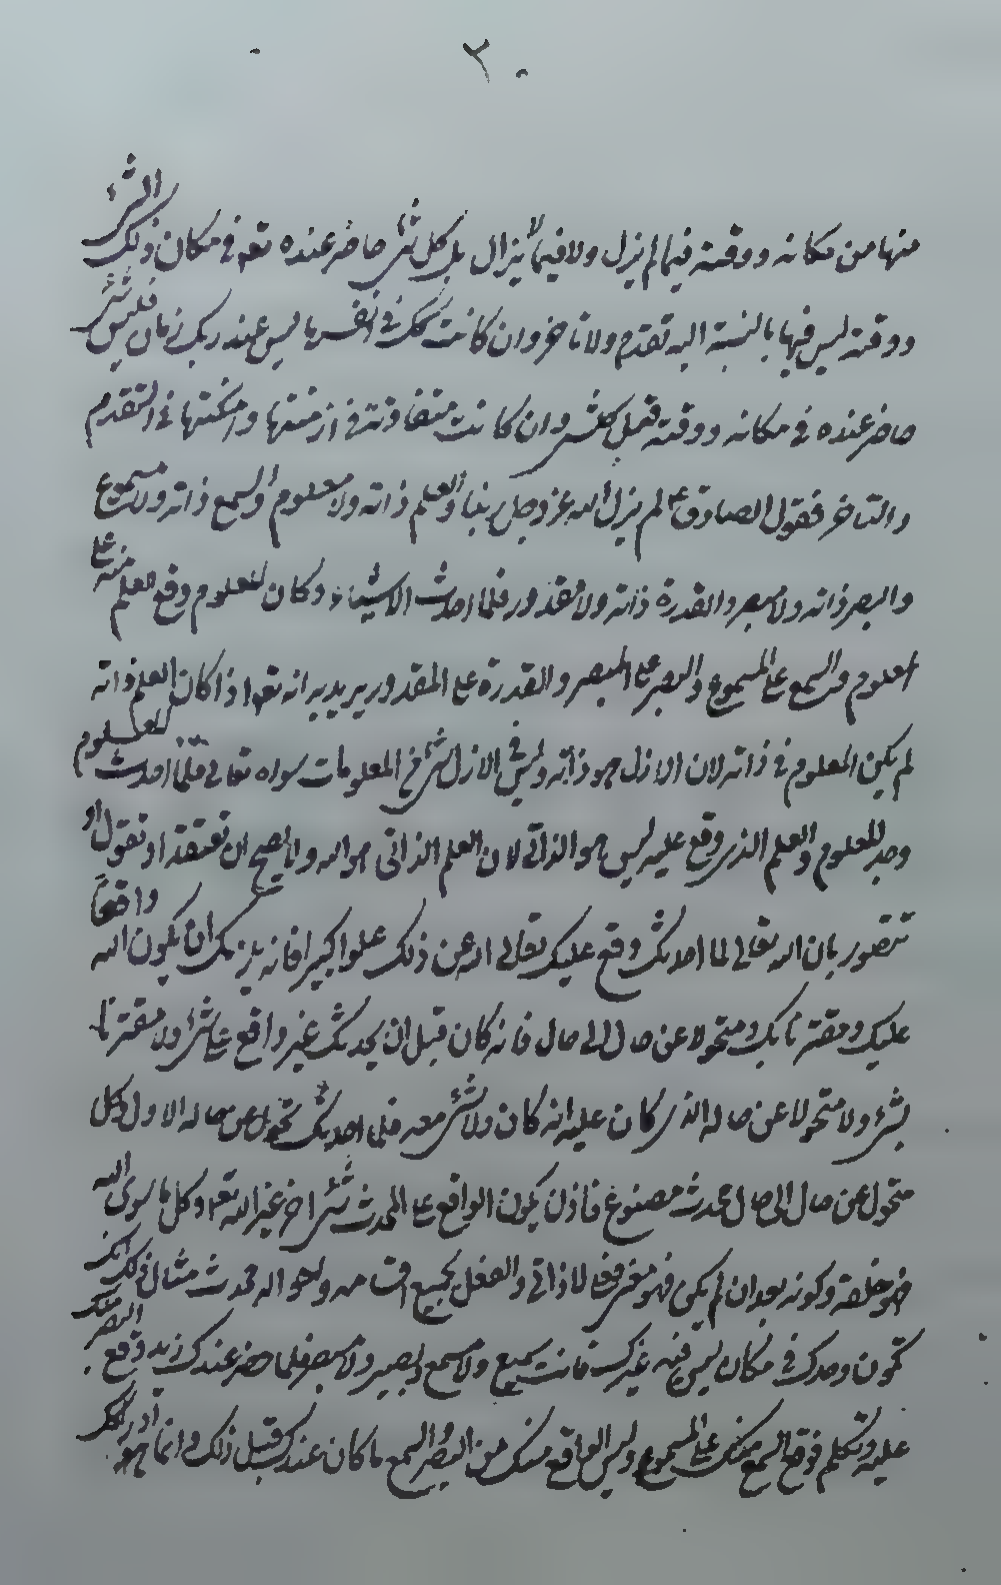 ٢٠
منها من مكانه ووقته فيما لم يزل ولا فيما لا يزال بل كل شئ حاضر عنده تعه في مكان ذلك الشئ
ووقته ليس فيها بالنسبة اليه تقدم ولا تاخر وان كانت كك في انفسها ليس عند ربك زمان فليس شئ
حاضر عنده في مكانه ووقته قبل كلشئ وان كانت متفاوتة في ازمنتها وامكنتها في التقدم
والتاخر فقول الصادق ع لم يزل الله عز وجل ربنا والعلم ذاته ولا معلوم والسمع ذاته ولا مسموع
والبصر ذاته ولا مبصر والقدرة ذاته ولا مقدور فلما احدث الاشياء وكان المعلوم وقع العلم منه على
المعلوم والسمع على المسموع والبصر على المبصر والقدرة على المقدور يريد به انه تعه اذا كان العلم ذاته
لم يكن المعلوم في ذاته لان الازل هو ذاته وليس في الازل شئ من المعلومات سواه تعالى فلما احدث المعلوم
وجد المعلوم والعلم الذى وقع عليه ليس هو الذاتى لان العلم الذاتى هو الله ولا يصح ان تعتقد او تقول او
تتصور بان الله تعالى لما احدثك وقع عليك تعالى الله عن ذلك علوا كبيرا فانه يلزمك ان يكون الله واقعاً
عليك ومقترنا بك ومتحولا عن حال الى حال فانه كان قبل ان يحدثك غير واقع على شئ ولا مقترنا
بشئ ولا متحولا عن حاله الذى كان عليه انه كان ولا شئ معه فلما احدثك تحول عن حاله الاول وكل
متحول عن حال الى حال محدث مصنوع فاذن يكون الواقع على المحدث شئ اخر غير الله تعه وكل ما سوى الله
فهو خلقه وكونه بعد ان لم يكن فهو معنى فعلى لا ذاتى والفعل بجميع اقسامه واحواله محدث مثال ذلك انك
تكون وحدك في مكان ليس فيه غيرك فانت سميع ولا مسموع وبصير ولا مبصر فلما حضر عندك زيد وقع البصر منك
عليه وتكلم فوقع السمع منك على المسموع وليس الواقع منك من البصر والسمع ما كان عندك قبل ذلك وانما هو ادراكك